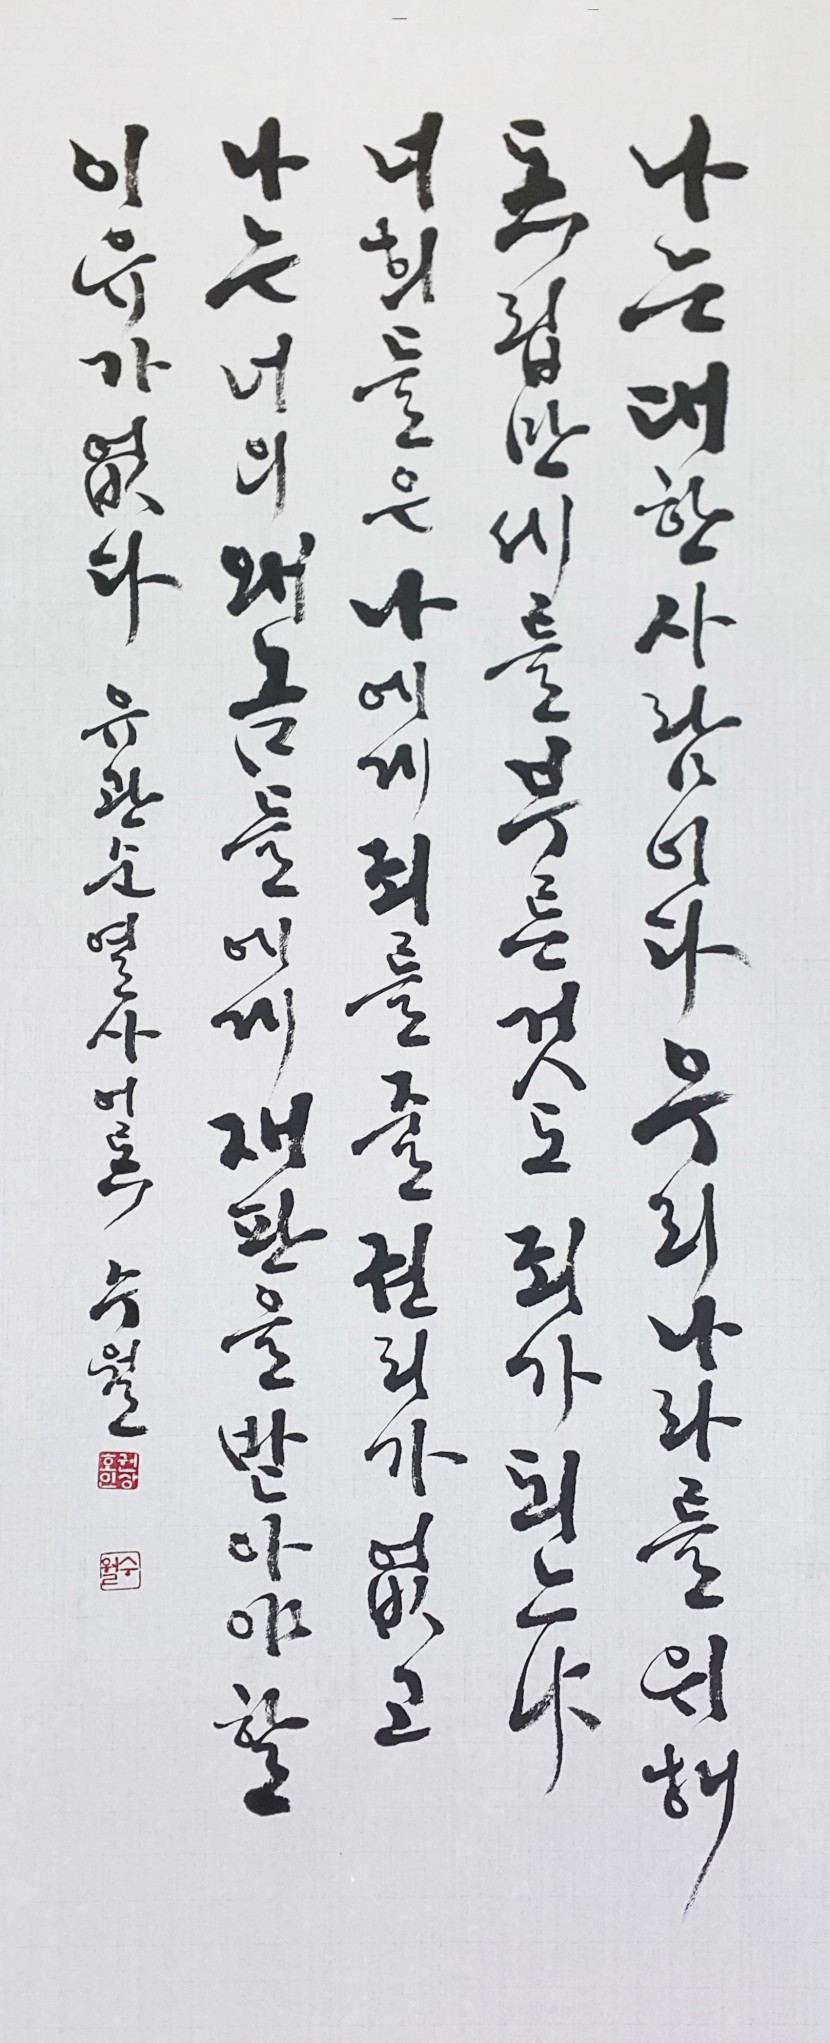 나는대한사람이다우리나라를위해
독립만세를부른것도죄가되는냐
너희들은나에게죄를줄권리가없고
나는너의왜놈들에게재판을받아야할
이유가없다 유관순열사어록 수월
권상
호인
수월